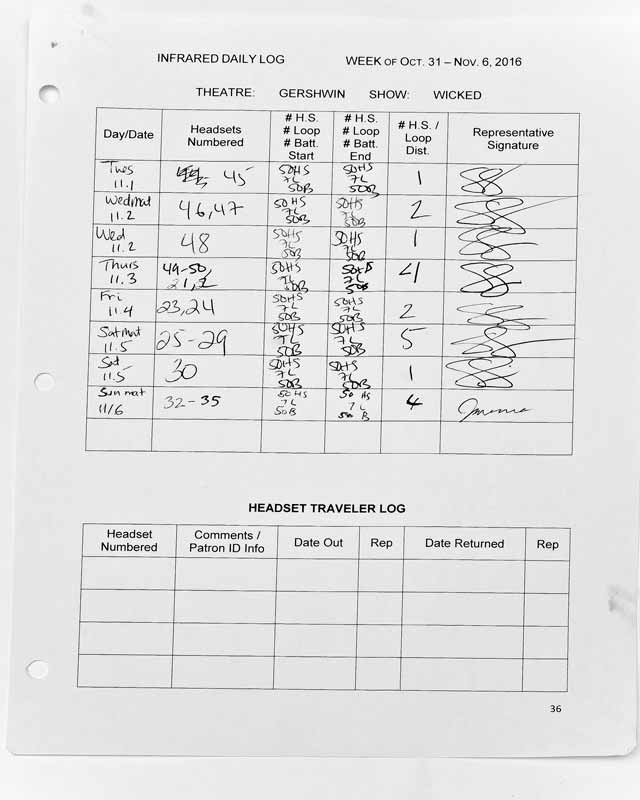 INFRARED DAILY LOG WEEK OF OCT. 31 – NOV. 6, 2016
THEATRE: GERSHWIN SHOW: WICKED
Day/Date
Headsets
Numbered
# H.S.
# Loop
# Batt.
Start
# H.S.
# Loop
# Batt.
End
# H.S. /
Loop
Dist.
Representative
Signature
Tues
11.1
45
50HS
7L
50B
50HS
7L
50B
1
Wedmat
11.2
46,47
50HS
7L
50B
50HS
7L
50B
2
Wed
11.2
48
50HS
7L
50B
50HS
7L
50B
1
Thurs
11.3
49-50,
50HS
7L
50B
50HS
7L
50B
4
Fri
11.4
23,24
50HS
7L
50B
50HS
7L
50B
2
Satmat
11.5
25-29
50HS
7L
50B
50HS
7L
50B
5
Sat
11.5
30
50HS
7L
50B
50HS
7L
50B
1
Sun mat
11/6
32-35
50 HS
7 L
50 B
50 HS
7 L
50 B
4
HEADSET TRAVELER LOG
Headset
Numbered
Comments /
Patron ID Info
Date Out
Rep
Date Returned
Rep
36